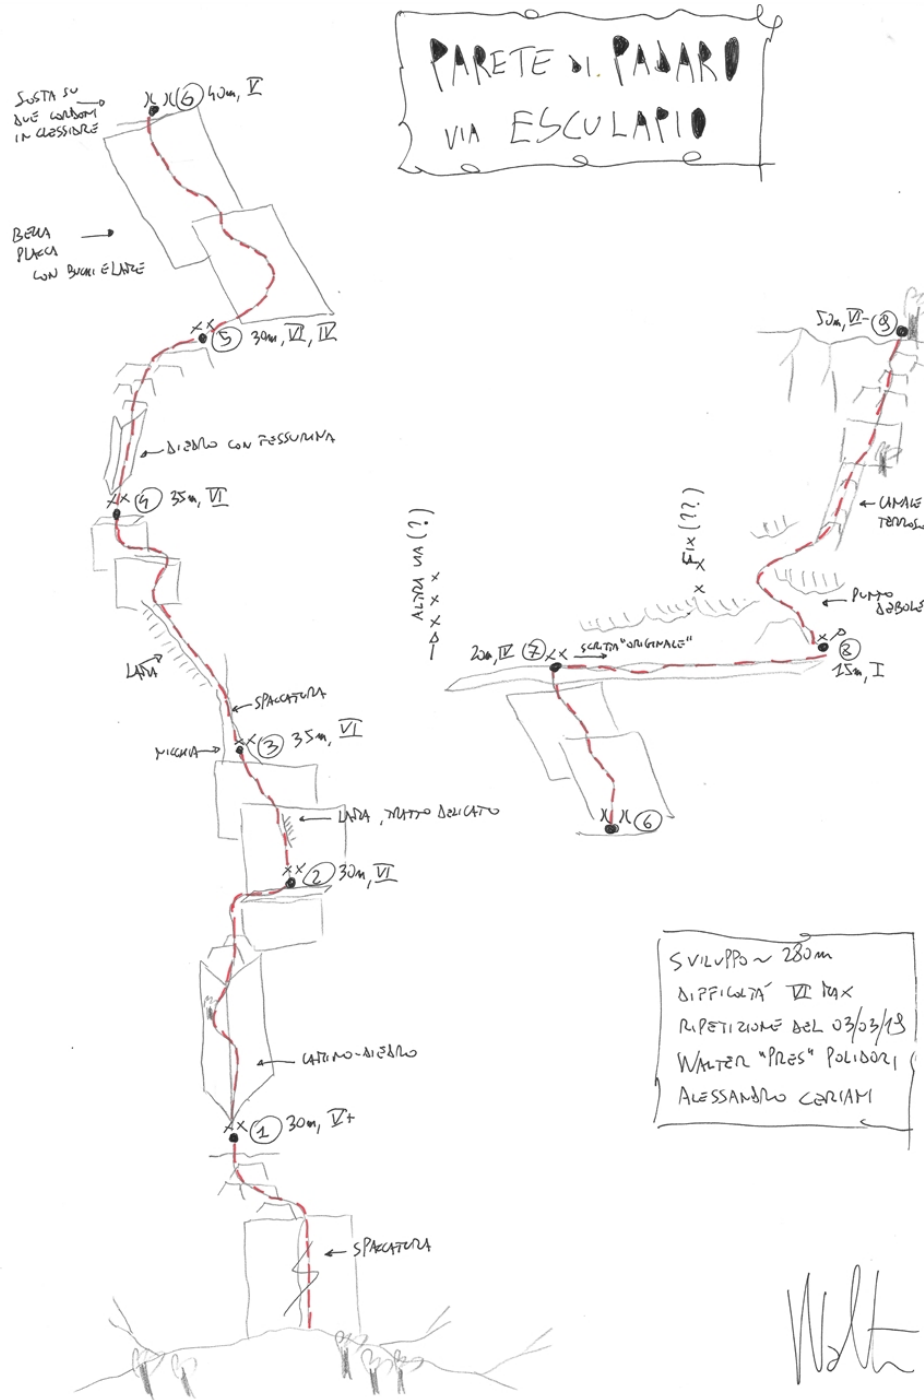 PARETE DI PADARO
VIA ESCULAPIO
SOSTA SU
DUE CORDONI
IN CLESSIDRE
6 40m, V
BELLA
PLACCA
CON BUCHI E LAME
5 30m, VI, IV
DIEDRO CON FESSURINA
4 35m, VI
LAMA
SPACCATURA
NICCHIA
3 35m, VI
LAMA, TRATTO DELICATO
2 30m, VI
CAMINO-DIEDRO
1 30m, V+
SPACCATURA
50m, VI- 9
CANALE
TERROSO
PUNTO
DEBOLE
FIX (??)
ALTRA VIA (?)
20m, IV 7
SCRITTA "ORIGINALE"
8
15m, I
6
SVILUPPO ~ 280m
DIFFICOLTÀ VI MAX
RIPETIZIONE DEL 03/03/19
WALTER "PRES" POLIDORI
ALESSANDRO CERIANI
Walter